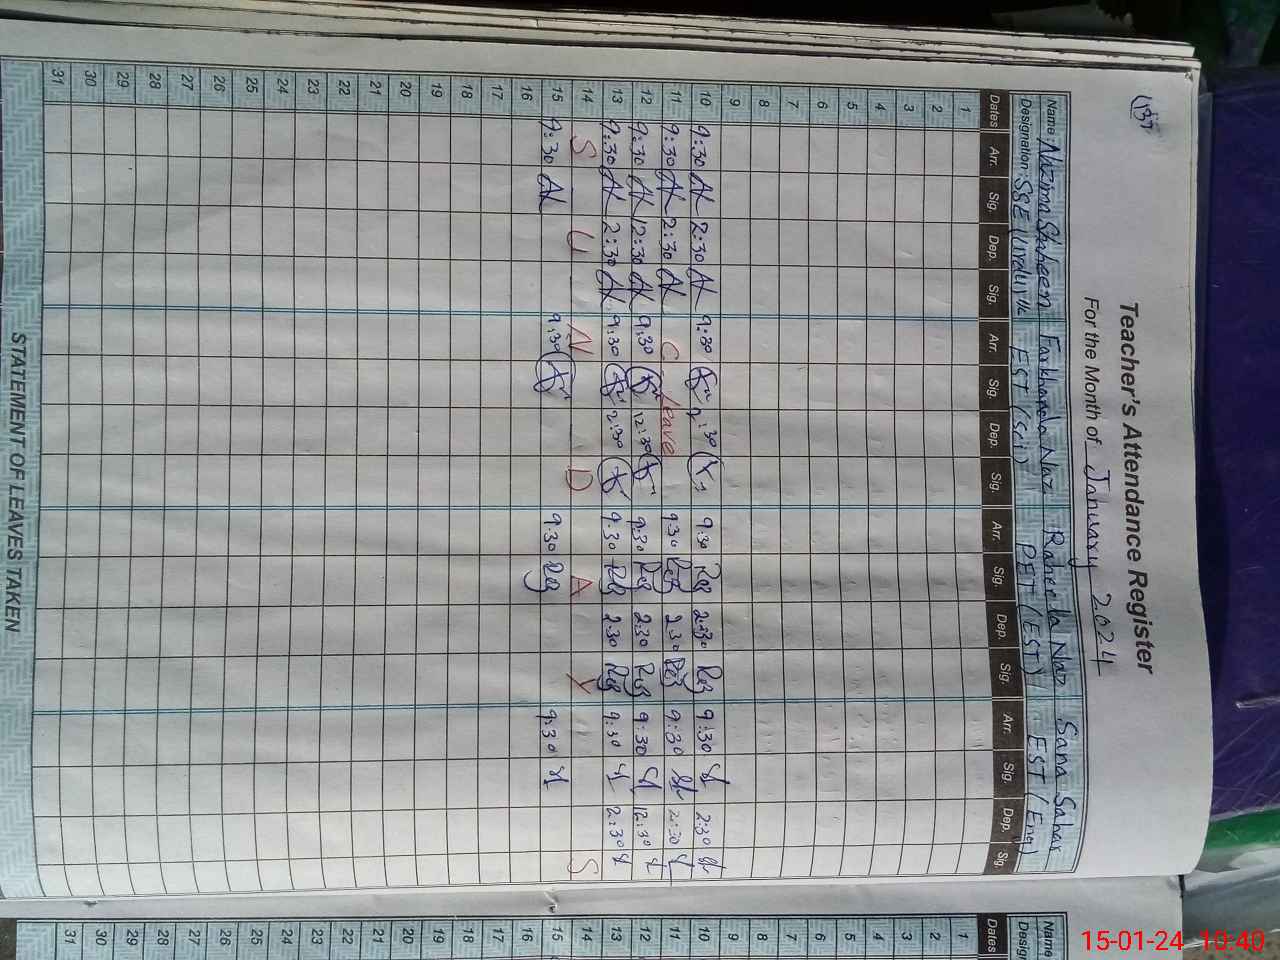 137
Teacher's Attendance Register
For the Month of January 2024
Name: Nazma Shaheen Farkhanda Naz Raheela Naz Sana Sahar
Designation: SSE (Urdu) EST (Sci) PET (EST) EST (Eng)
Dates Arr. Sig. Dep. Sig. Arr. Sig. Dep. Sig. Arr. Sig. Dep. Sig. Arr. Sig. Dep. Sig.
1
2
3
4
5
6
7
8
9
10 9:30 2:30 9:30 2:30 9:30 2:30 9:30 2:30
11 9:30 2:30 C. Leave 9:30 2:30 9:30 2:30
12 9:30 12:30 9:30 12:30 9:30 2:30 9:30 12:30
13 9:30 2:30 9:30 2:30 9:30 2:30 9:30 2:30
14 S U N D A Y S
15 9:30 9:30 9:30 9:30
16
17
18
19
20
21
22
23
24
25
26
27
28
29
30
31
STATEMENT OF LEAVES TAKEN
Name
Design
Dates
1
2
3
4
5
6
7
8
9
10
11
12
13
14
15
16
17
18
19
20
21
22
23
24
25
26
27
28
29
30
31
15-01-24 10:40